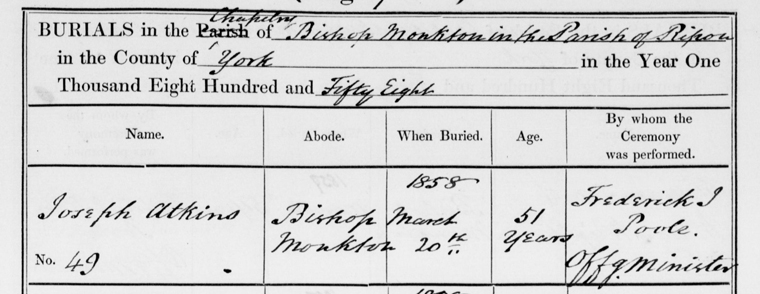 Chapelry
BURIALS in the Parish of Bishop Monkton in the Parish of Ripon
in the County of York in the Year One
Thousand Eight Hundred and Fifty Eight
Name. Abode. When Buried. Age. By whom the Ceremony was performed.
Joseph Atkins
No. 49
Bishop
Monkton
1858
March
20th
51
Years
Frederick I
Poole.
Offg. Minister